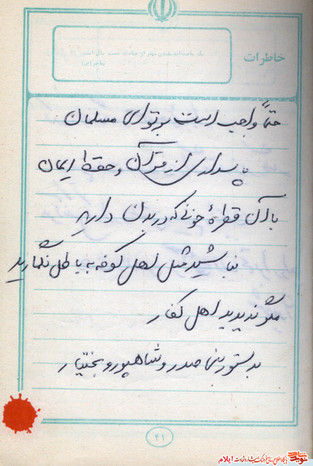 خاطرات
حتماً واجب است بر تو ای مسلمان
پاسداری از قرآن و حفظ ایمان
با آن قطرهٔ خونی که در بدن دارید
نباشید مثل اهل کوفه به باطل نگمارید
مگو ندیدید اهل کفار
بدستور بنی صدر و شاهپور و بختیار
۲۱